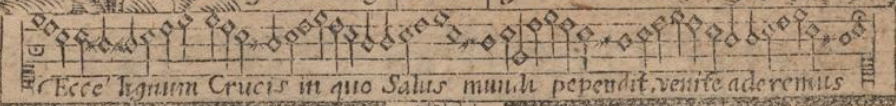 Ecce lignum Crucis in quo Salus mundi pependit, venite adoremus